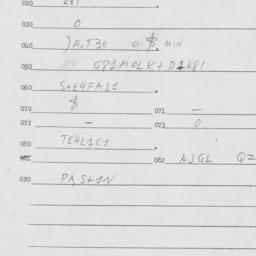 020 K81
030 O
040 )A.T3R $ MIN
050 G81MOLK+D1K81
060 S+E4FAL1
070 $ 071 —
072 — 073 O
080 TE4L1C1
081 082 AJGL QZ
090 PA,S+1N